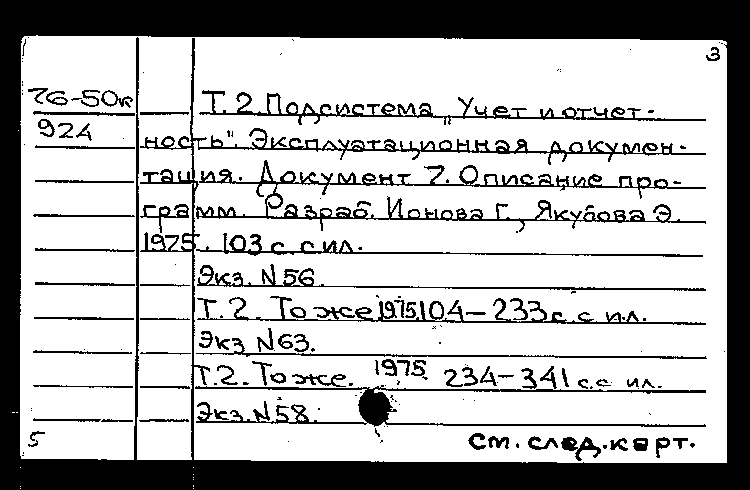 3
76-50к Т. 2. Подсистема „Учет и отчет-
924 ность". Эксплуатационная докумен-
тация. Документ 7. Описание про-
грамм. Разраб. Ионова Г., Якубова Э.
1975. 103 с с ил.
Экз. N 56.
Т. 2. То же 1975. 104-233 с. с ил.
Экз N 63.
Т. 2. То же. 1975. 234-341 с. с ил.
Экз. N 58.
5 см. след. карт.